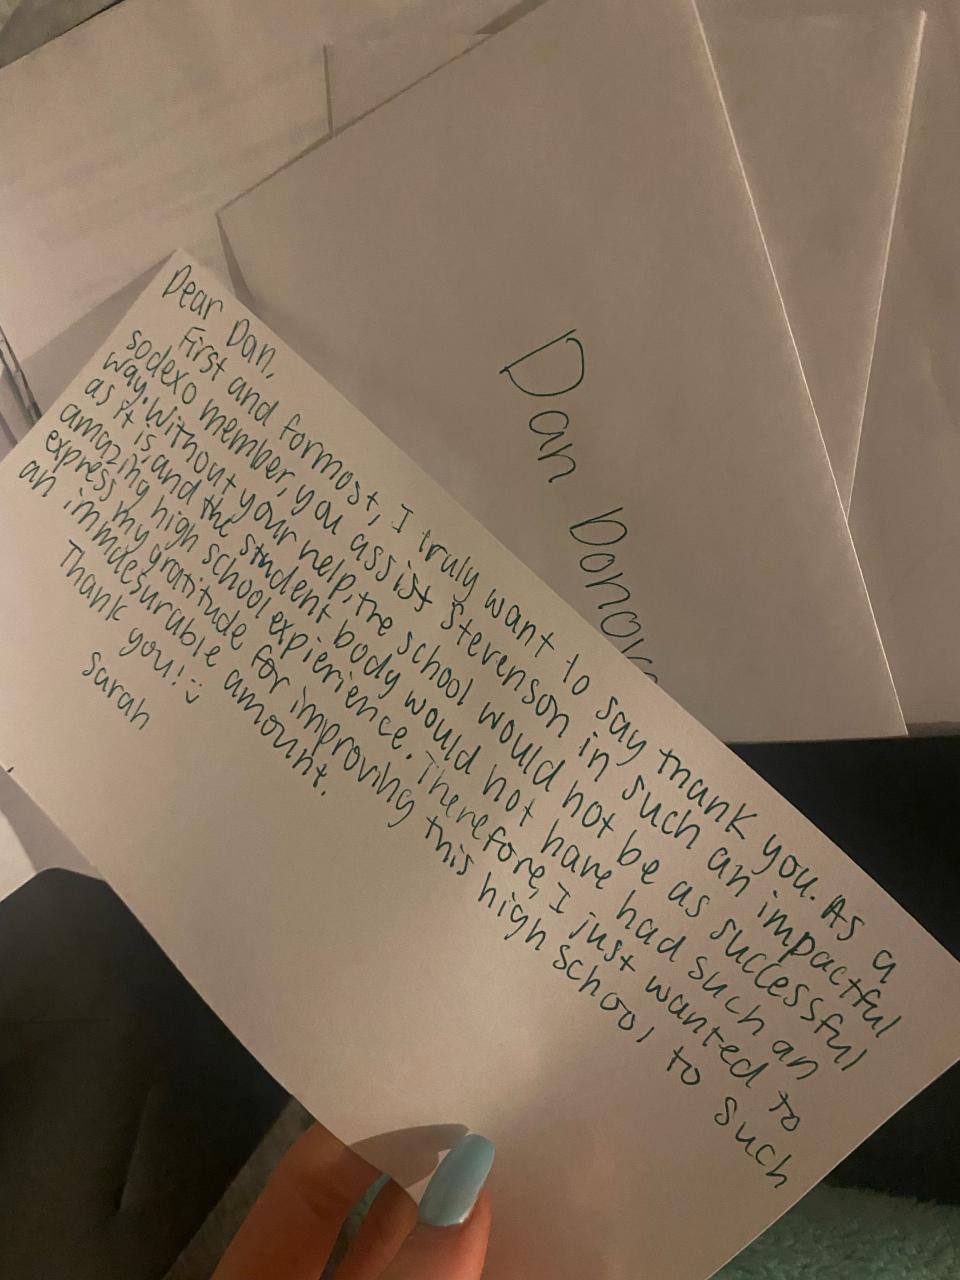 Dear Dan,
First and formost, I truly want to say thank you. As a
sodexo member, you assist Stevenson in such an impactful
way. Without your help, the school would not be as successful
as it is, and the student body would not have had such an
amazing high school expierience. Therefore, I just wanted to
express my gratitude for improving this high school, to such
an immdesurable amount.
Thank you! :)
Sarah
Dan